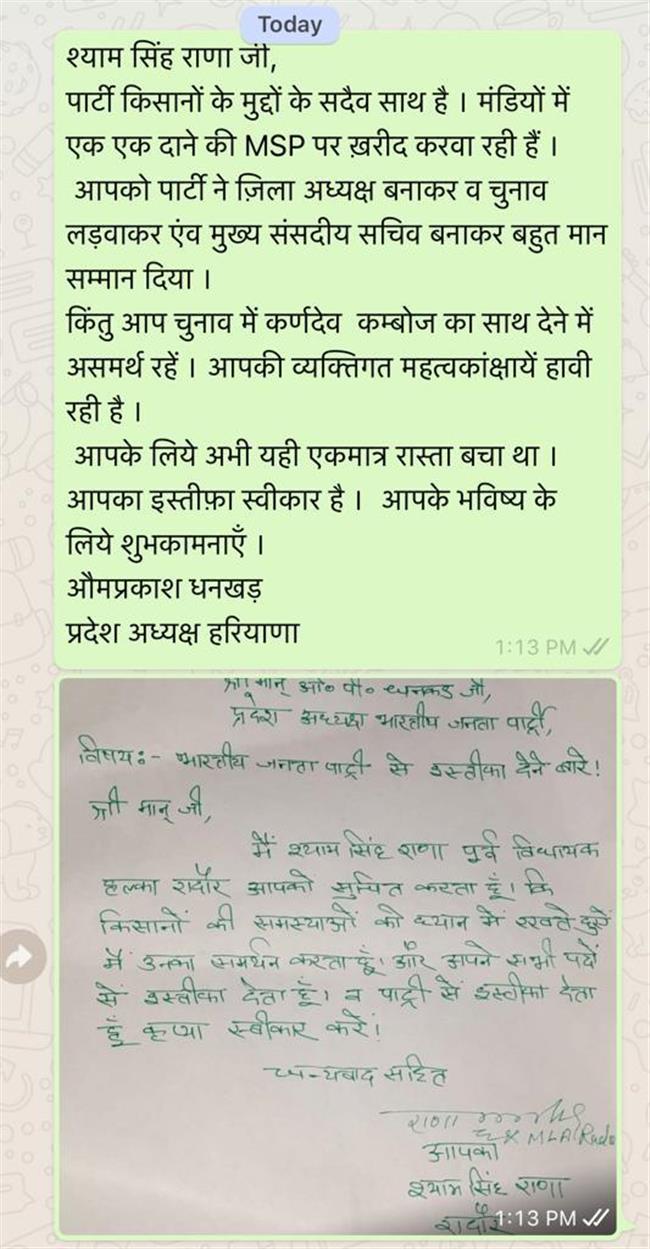 Today
श्याम सिंह राणा जी,
पार्टी किसानों के मुद्दों के सदैव साथ है । मंडियों में
एक एक दाने की MSP पर ख़रीद करवा रही हैं ।
आपको पार्टी ने ज़िला अध्यक्ष बनाकर व चुनाव
लड़वाकर एंव मुख्य संसदीय सचिव बनाकर बहुत मान
सम्मान दिया ।
किंतु आप चुनाव में कर्णदेव कम्बोज का साथ देने में
असमर्थ रहें । आपकी व्यक्तिगत महत्वकांक्षायें हावी
रही है ।
आपके लिये अभी यही एकमात्र रास्ता बचा था ।
आपका इस्तीफ़ा स्वीकार है । आपके भविष्य के
लिये शुभकामनाएँ ।
औमप्रकाश धनखड़
प्रदेश अध्यक्ष हरियाणा
1:13 PM
श्री मान् ओ० पी० धनकड जी,
प्रदेश अध्यक्ष भारतीय जनता पार्ट्री,
विषय:- भारतीय जनता पाट्री से इस्तीका देने बारे!
श्री मान् जी,
मैं श्याम सिंह राणा पुर्व विधायक
हल्का रादौर आपको सुचित करता हूँ। कि
किसानों की समस्याओं को ध्यान में रखते हुऐ
मैं उनका समर्थन करता हूँ। और अपने सभी पदों
से इस्तीका देता हूँ। व पाट्री से इस्तीफा देता
हूँ कृप्या स्वीकार करें।
धन्यबाद सहित
राणा
Ex MLA Rado
आपका
श्याम सिंह राणा
रादौर
1:13 PM